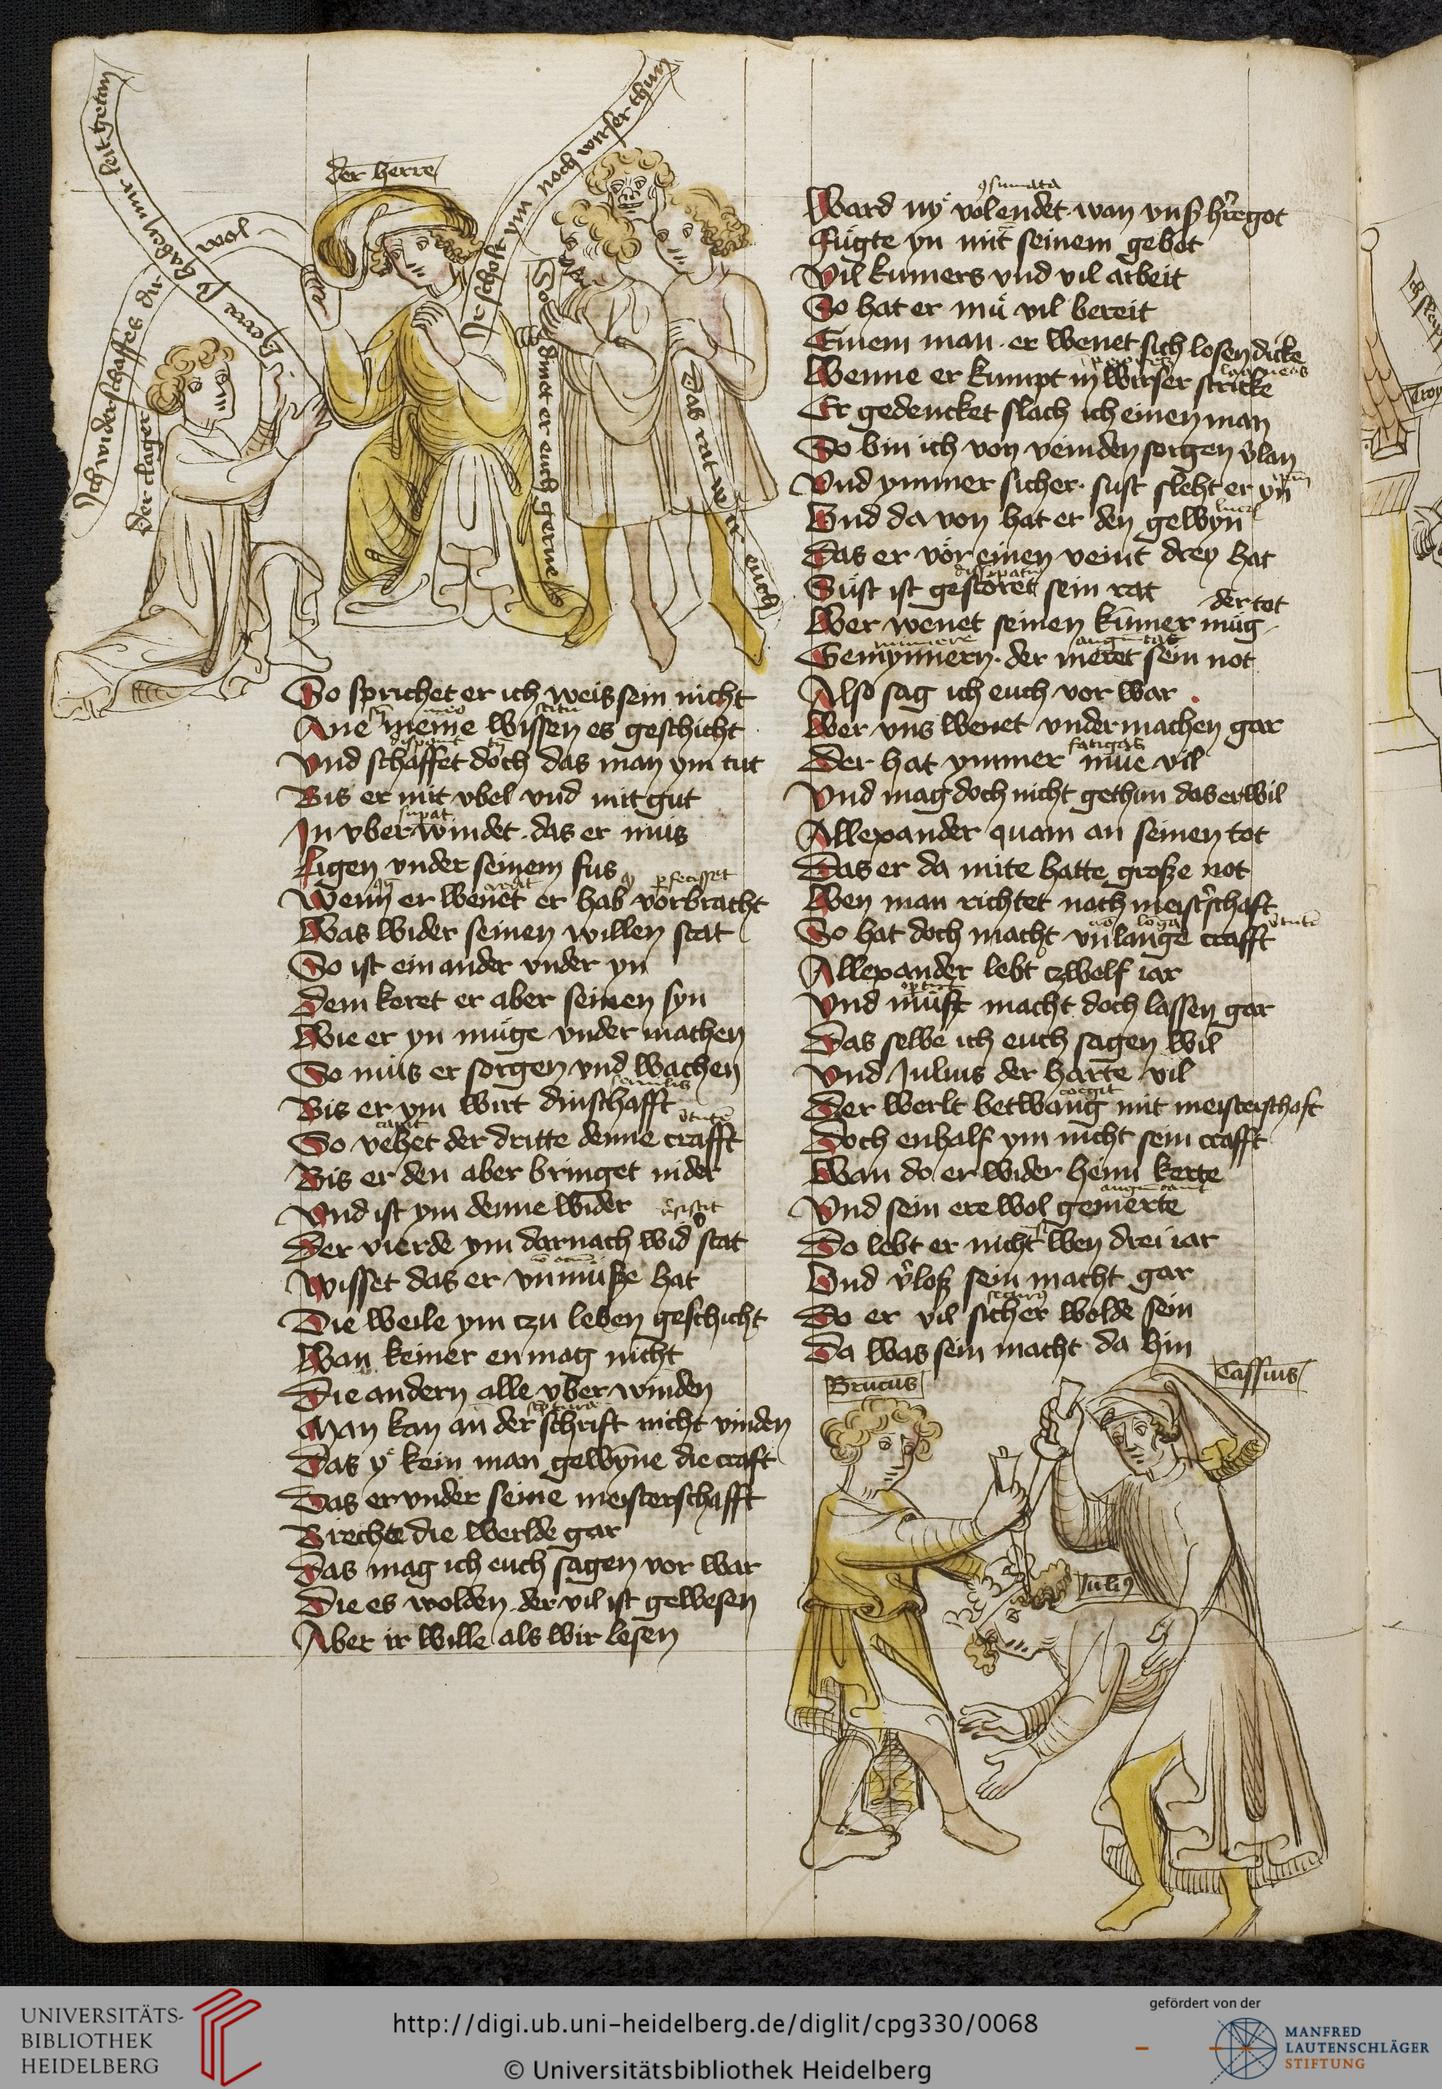 der herre
Herre sy haben mir leit getan
Ich widerschaffes dir wol
Der clager
Ir scholt ym noch wirser thun
So dinet er euch gerne
Das rat wir euch
So sprichet er ich weis sein nicht
Ane meine wissen es geschicht
Vnd schaffet doch das man ym tut
Bis er mit vbel vnd mit gut
In vberwindet das er mus
Ligen vnder seinem fus
Wenn er wenet er hab vorbracht
Was wider seinen willen stat
So ist ein ander vnder yn
Dem keret er aber seinen syn
Wie er yn muge vnder machen
So mus er sorgen vnd wachen
Bis er ym wirt dinschafft
So vehet der dritte denne crafft
Bis er den aber bringet nider
Vnd ist ym denne wider
Der vierde ym darnach wid stat
Wisset das er vnmusze hat
Die weile ym czu leben geschicht
Wan keiner en mag nicht
Die andern alle vber winden
Man kan an der schrift nicht vinden
Das y kein man gewyne die craft
Das er vnder seine meisterschafft
Brechte die werlde gar
Das mag ich euch sagen vor war
Die es wolden der vil ist gewesen
Aber ir wille als wir lesen
Ward ny volendet wan vnß hregot
Fugte yn mit seinem gebot
Vil kumers vnd vil arbeit
So hat er mu vil bereit
Einem man er wenet sich losen dicke
Wenne er kumpt in wirser stricke
Er gedencket slach ich einen man
So bin ich von veinden sorgen vlan
Vnd ymmer sicher sust sleht er yn
Vnd da von hat er den gewyn
Das er vor einen veint drey hat
Sust ist gestoret sein rat
Wer wenet seinen kumer mug
der tot
Gemynnern der meret sein not
Also sag ich euch vor war
Wer vns wenet vndermachen gar
Der hat ymmer mue vil
Vnd mag doch nicht gethun das er wil
Allexander quam an seinen tot
Das er da mite hatte große not
Wen man richtet nach meistschaft
So hat doch macht vn lange crafft
Allexander lebt czwelf iar
Vnd must macht doch lassen gar
Das selbe ich euch sagen wil
Vnd Julius der harte vil
Der werlt betwang mit meisterschaft
Doch enhalf ym nicht sein crafft
Wan do er wider heim kerte
Vnd sein ere wol gemerte
Do lebt er nicht wen drei iar
Vnd vloß sein macht gar
Do er vil sicher wolde sein
Da was sein macht da hin
Brutus
Cassius
Juli9
UNIVERSITÄTS-
BIBLIOTHEK
HEIDELBERG
http://digi.ub.uni-heidelberg.de/diglit/cpg330/0068
© Universitätsbibliothek Heidelberg
gefördert von der
MANFRED
LAUTENSCHLÄGER
STIFTUNG